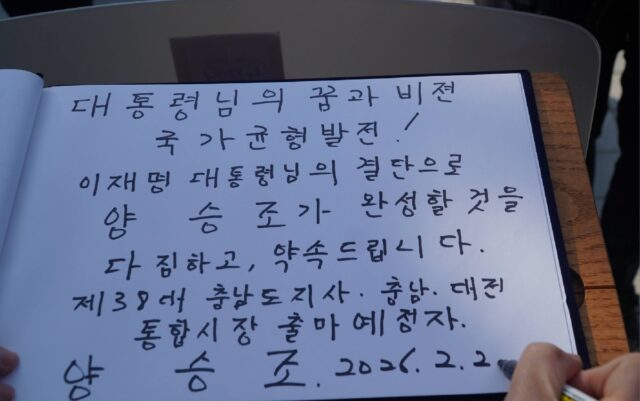 대통령님의 꿈과 비전
국가균형발전!
이재명 대통령님의 결단으로
양 승 조가 완성할 것을
다짐하고, 약속드립니다.
제38대 충남도지사. 충남. 대전
통합시장 출마예정자.
양 승 조. 2026.2.2